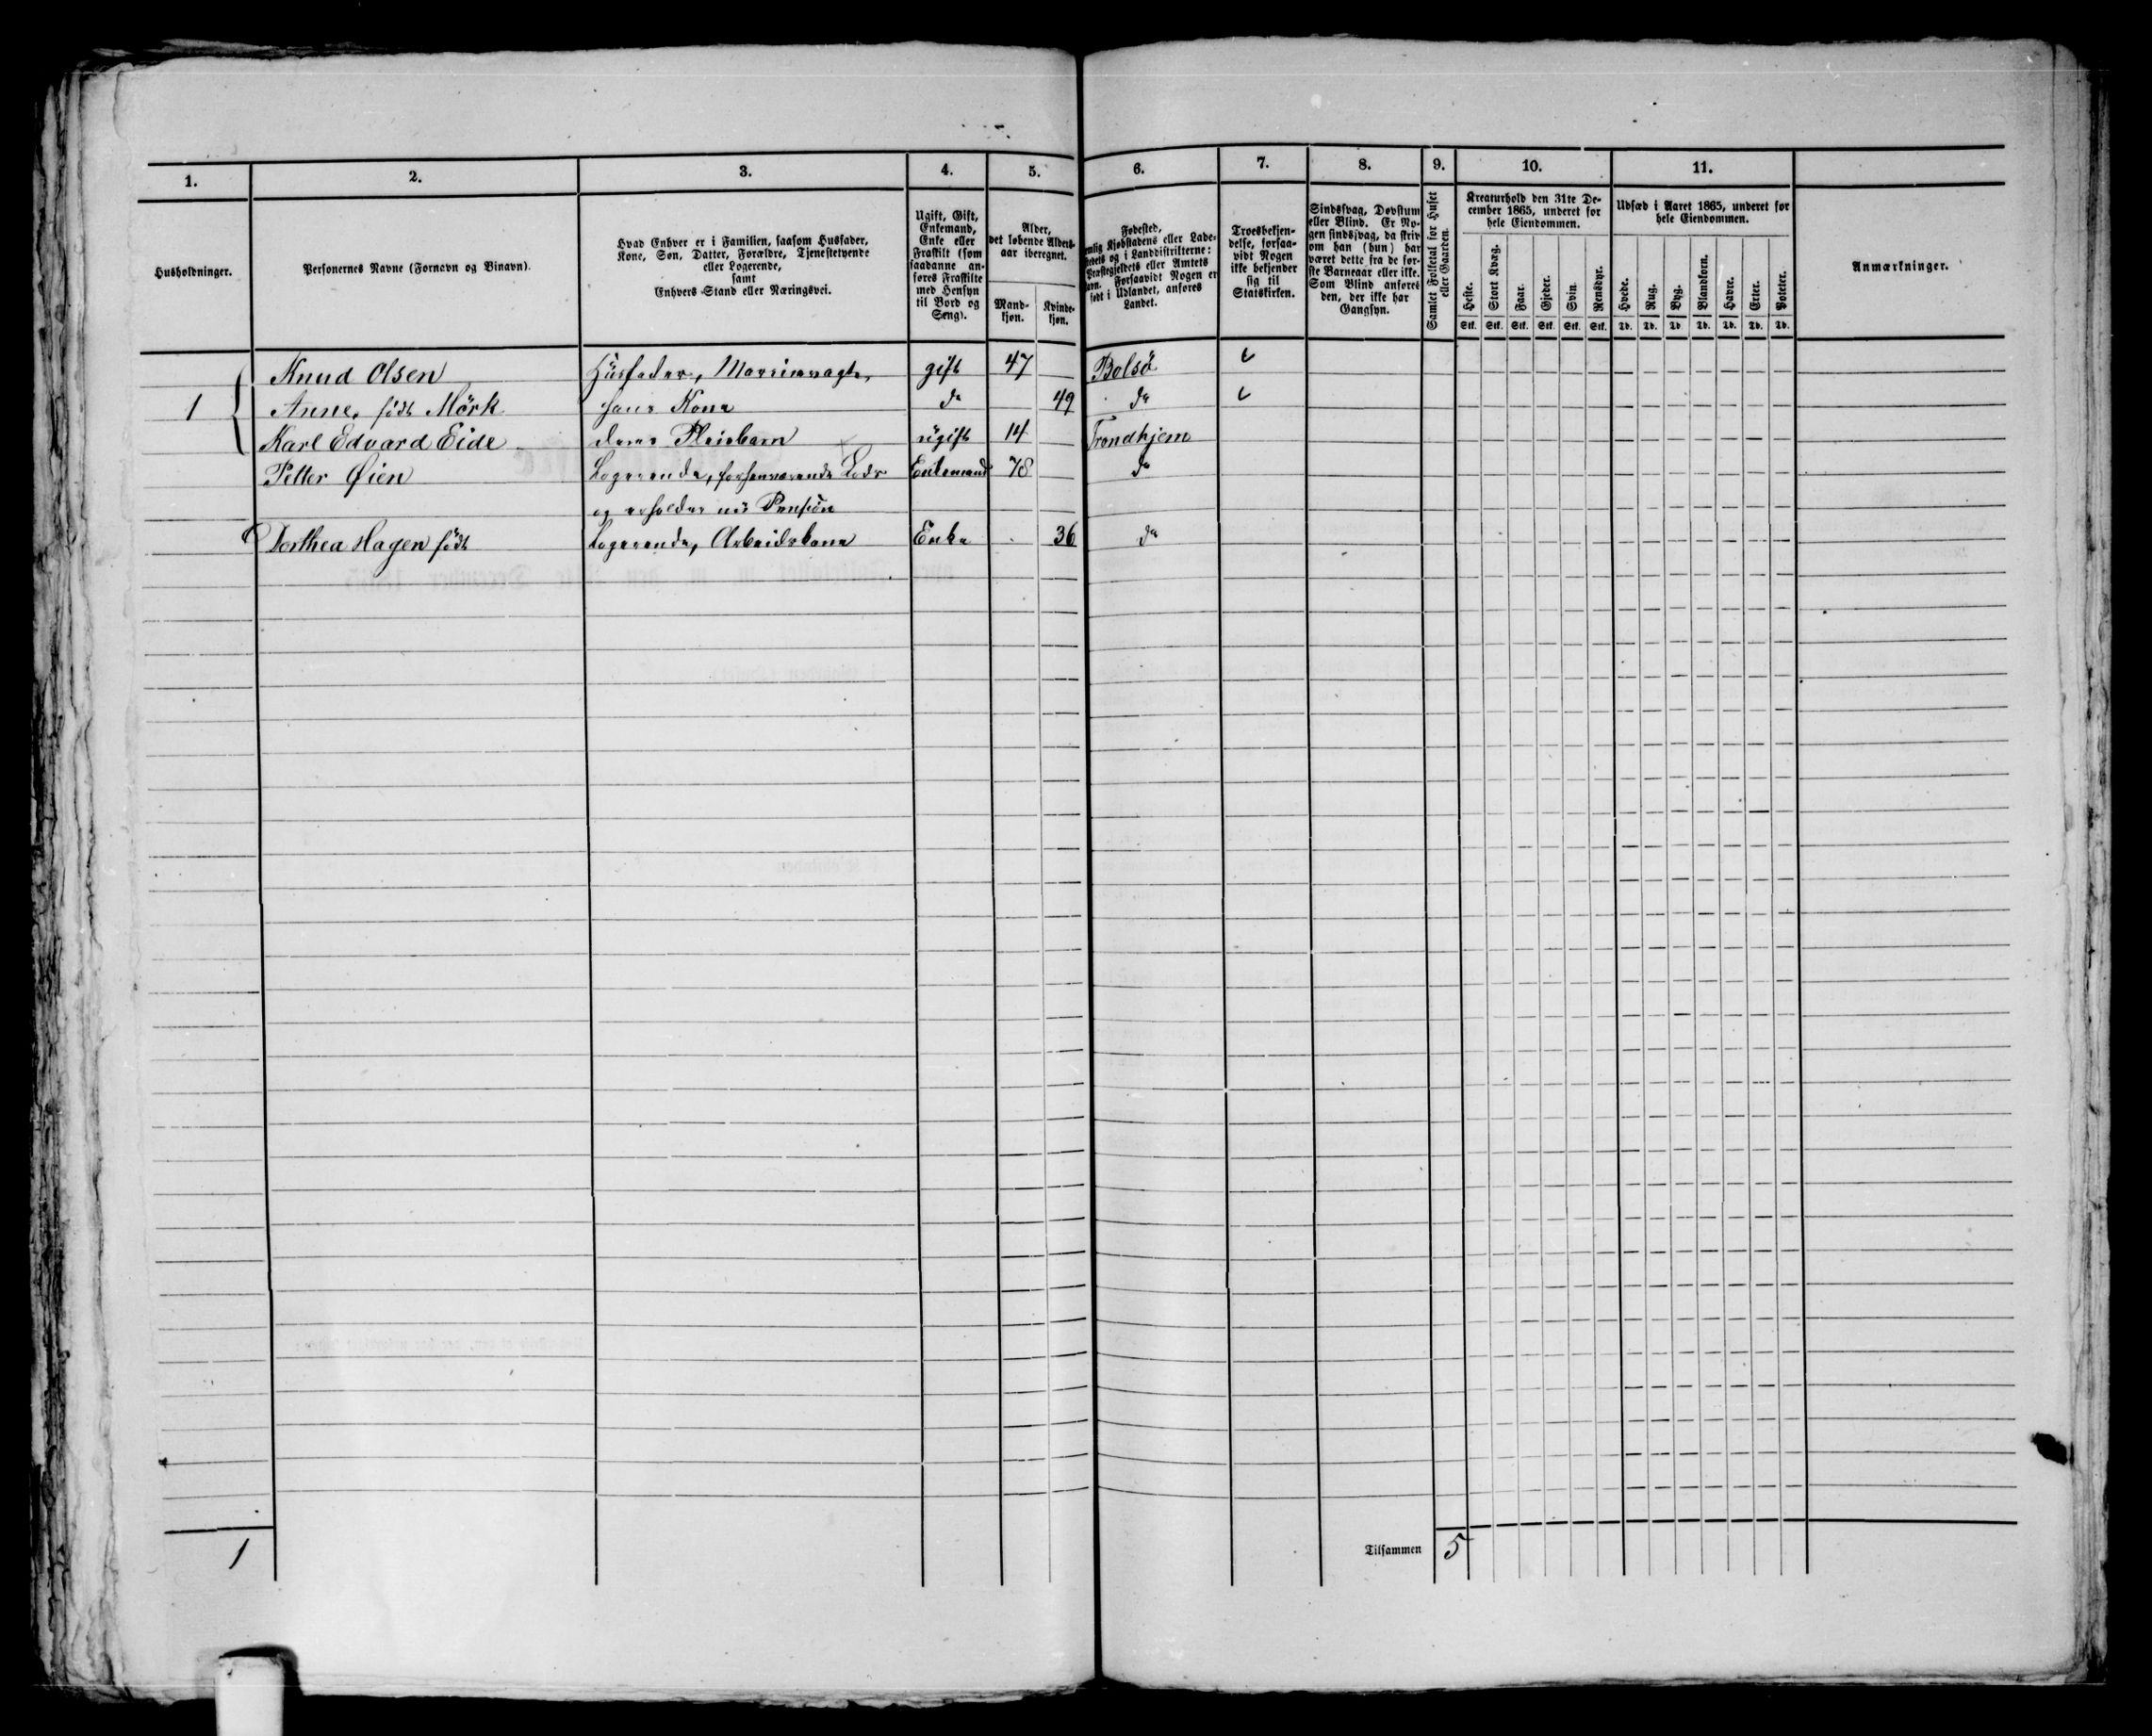 1. 2. 3. 4. 5. 6. 7. 8. 9. 10. 11.
Husholdninger.
Personernes Navne (Fornavn og Binavn).
Hvad Enhver er i Familien, saasom Husfader,
Kone, Søn, Datter, Forældre, Tjenestetyende
eller Logerende,
samt
Enhvers Stand eller Næringsvei.
Ugift, Gift,
Enkemand,
Enke eller
Fraskilt (som
saadanne an-
føres Fraskilte
med Hensyn
til Bord og
Seng).
Alder,
det løbende Alders-
aar iberegnet.
Mand-
kjøn.
Kvinde-
kjøn.
Fødested,
Kjøbstadens eller Lade-
og i Landdistrikterne:
Præstegjeldets eller Amtets
Navn. Forsaavidt Nogen er
født i Udlandet, anføres
Landet.
Troesbekjen-
delse, forsaa-
vidt Nogen
ikke bekjender
sig til
Statskirken.
Sindssvag, Døvstum
eller Blind. Er No-
gen sindssvag, da skriv
om han (hun) har
været dette fra de før-
ste Barneaar eller ikke.
Som Blind anføres
den, der ikke har
Gangsyn.
Samlet Folketal for Huset
eller Gaarden.
Kreaturhold den 31te De-
cember 1865, underet for
hele Eiendommen.
Heste. Stort Kvæg. Faar. Gjeder. Svin. Rensdyr.
Stk. Stk. Stk. Stk. Stk. Stk.
Udsæd i Aaret 1865, underet for
hele Eiendommen.
Hvede. Rug. Byg. Blandkorn. Havre. Erter. Poteter.
Td. Td. Td. Td. Td. Td. Td.
Anmærkninger.
Knud Olsen Husfader, gift 47 Bolsö
1 Anne, födt Mörk hans Kone do 49 do
Karl Edvard Eide deres Pleiebarn ugift 14 Trondhjem
Petter Øien Logerende, forhenværende Lods Enkemand 78 do
og erholder nu Pension
Dorthea Hagen födt Logerende, Arbeidskone Enke 36 do
1 Tilsammen 5